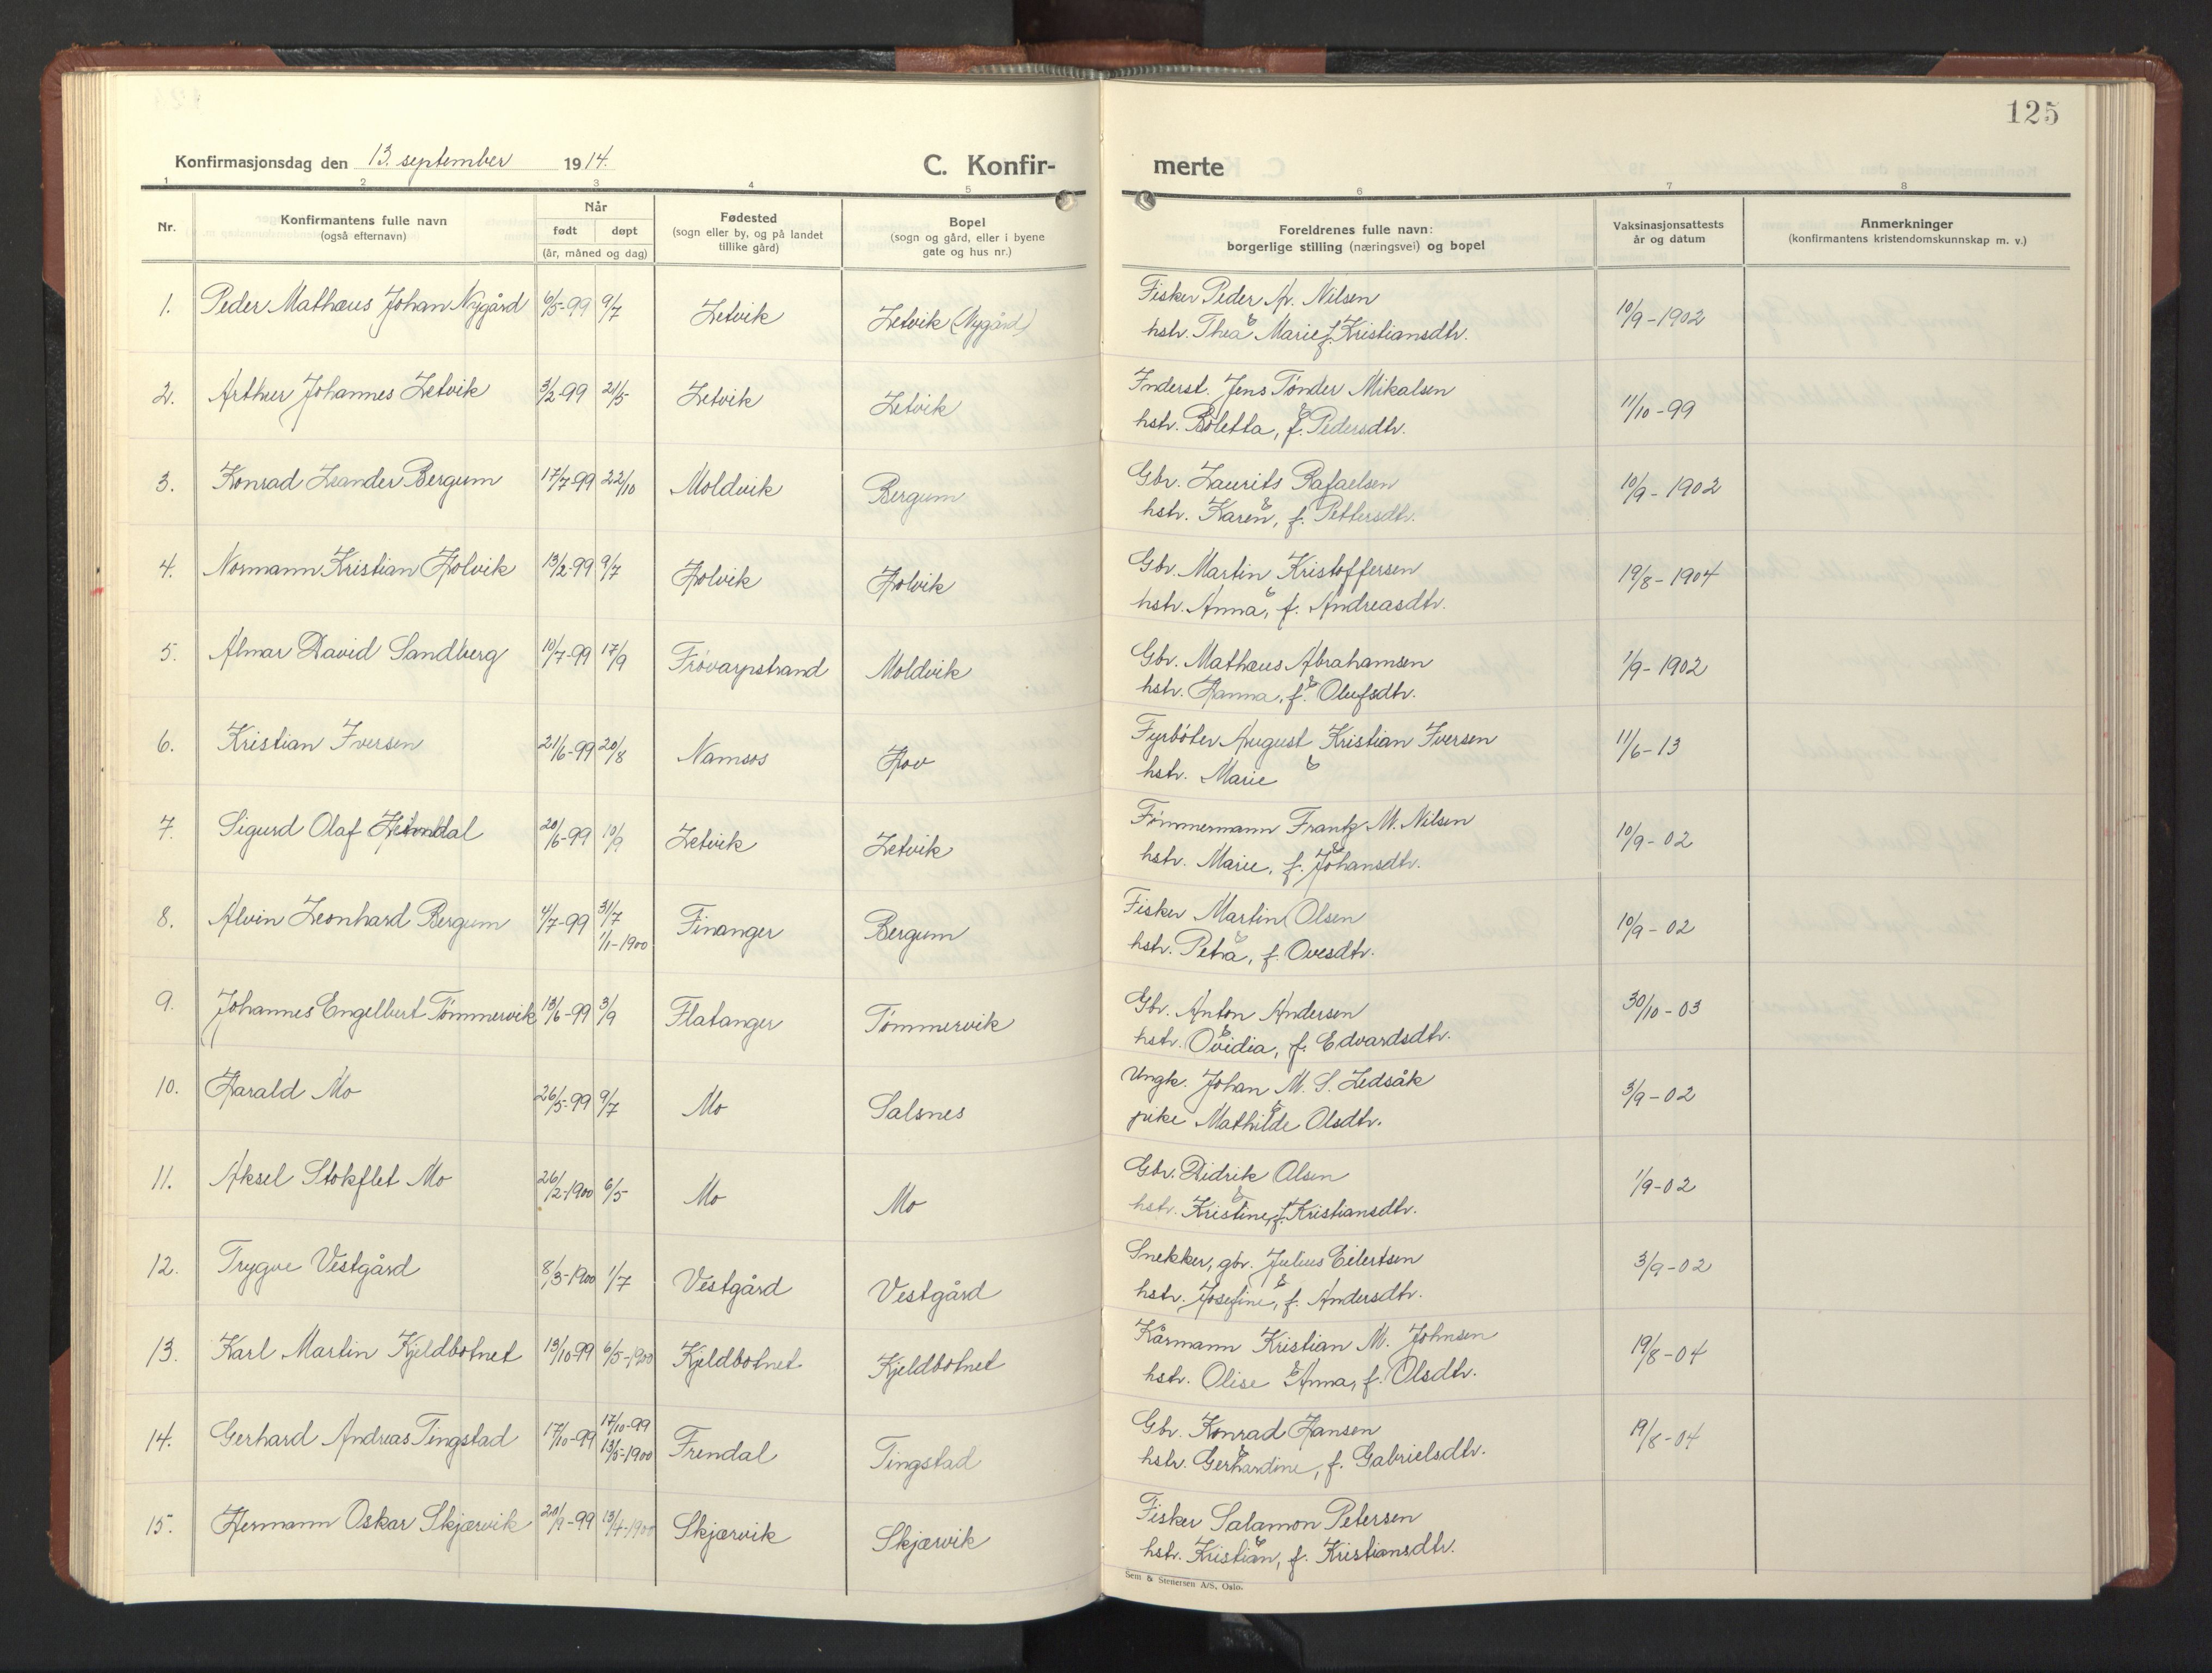 125
Konfirmasjonsdag den 13. september 1914.
C. Konfirmerte
1 2 3 4 5 6 7 8
Nr.
Konfirmantens fulle navn
(også efternavn)
Når
født døpt
(år, måned og dag)
Fødested
(sogn eller by, og på landet
tillike gård)
Bopel
(sogn og gård, eller i byene
gate og hus nr.)
Foreldrenes fulle navn:
borgerlige stilling (næringsvei) og bopel
Vaksinasjonsattests
år og datum
Anmerkninger
(konfirmantens kristendomskunnskap m. v.)
1. Peder Mathæus Johan Nygård 6/5-99 9/7 Letvik Letvik (Nygård) Fisker Peder A. Nilsen 10/9-1902
hstr. Thea Marie f. Kristiansdtr.
2. Arthur Johannes Letvik 3/2-99 21/5 Letvik Letvik Inderst. Jens Tønder Mikalsen 11/10-99
& hstr. Boletta, f. Pedersdtr.
3. Konrad Leander Bergum 17/7-99 22/10 Moldvik Bergum Gbr. Laurits Rafaelsen 10/9-1902
& hstr. Karen, f. Pettersdtr.
4. Normann Kristian Holvik 13/2-99 9/7 Holvik Holvik Gbr. Martin Kristoffersen 19/8-1904
& hstr. Anna, f. Andreasdtr.
5. Almar David Sandberg 10/7-99 17/9 Frövarpstrand Moldvik Gbr. Mathæus Abrahamsen 1/9-1902
& hstr. Hanna, f. Olufsdtr.
6. Kristian Iversen 21/6-99 20/8 Namsos Hov Fyrböter August Kristian Iversen 11/6-13
& hstr. Marie
7. Sigurd Olaf 20/6-99 10/9 Letvik Letvik Tömmermann Frantz M. Nilsen 10/9-02
& hstr. Marie, f. Johansdtr.
8. Alvin Leonhard Bergum 4/7-99 31/7 1/1-1900 Finanger Bergum Fisker Martin Olsen 10/9-02
& hstr. Petra, f. Ovesdtr.
9. Johannes Engelbert Tömmervik 13/6-99 3/9 Flatanger Tömmervik Gbr. Anton Andersen 30/10-03
& hstr. Ovidia, f. Edvardsdtr.
10. Harald Mo 26/5-99 9/7 Mo Salsnes Ungk. Johan M. S. Ledsåk 3/9-02
& pike Mathilde Olsdtr.
11. Aksel Stokflet Mo 26/2-1900 6/5 Mo Mo Gbr. Didrik Olsen 1/9-02
& hstr. Kristine, f. Kristiansdtr.
12. Trygve Vestgård 8/3-1900 1/7 Vestgård Vestgård Snekker, gbr. Julius Eilertsen 3/9-02
& hstr. Josefine, f. Andersdtr.
13. Karl Martin Kjeldbotnet 13/10-99 6/5-1900 Kjeldbotnet Kjeldbotnet Kårmann Kristian M. Johnsen 19/8-04
& hstr. Olise Anna, f. Olsdtr.
14. Gerhard Andreas Tingstad 17/10-99 17/10-99 13/5-1900 Frendal Tingstad Gbr. Konrad Hansen 19/8-04
& hstr. Gerhardine, f. Gabrielsdtr.
15. Hermann Oskar Skjærvik 20/9-99 13/4-1900 Skjærvik Skjærvik Fisker Salamon Petersen
& hstr. Kristian, f. Kristiansdtr.
Sem & Stenersen A/S, Oslo.